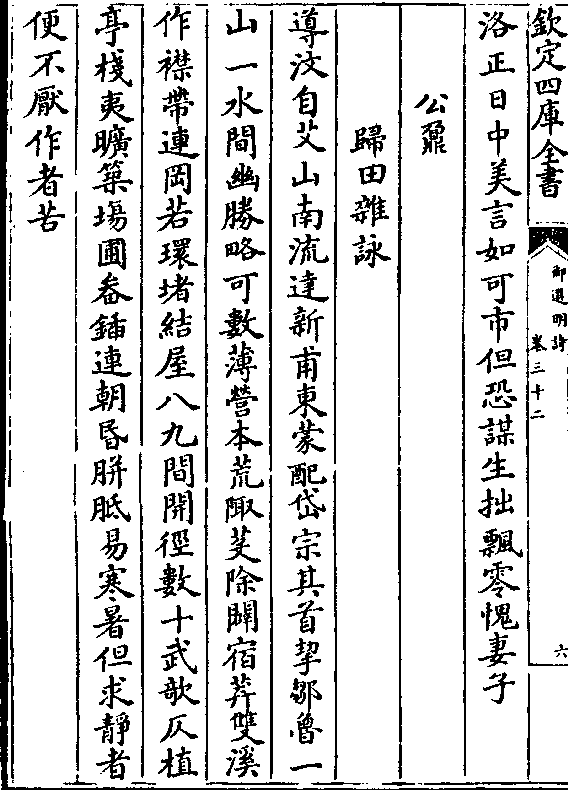 欽定四庫全書
御選明詩
卷三十二
六
洛正日中美言如可市但恐謀生拙飄零愧妻子
公鼐
歸田雜詠
導汶自艾山南流達新甫東蒙配岱宗其首挈鄒魯一
山一水間幽勝略可數薄營本荒陬芟除闢宿莽雙溪
作襟帶連岡若環堵結屋八九間開徑數十武欹仄植
亭棧夷曠築塲圃畚鍤連朝昏胼胝易寒暑但求靜者
便不厭作者苦